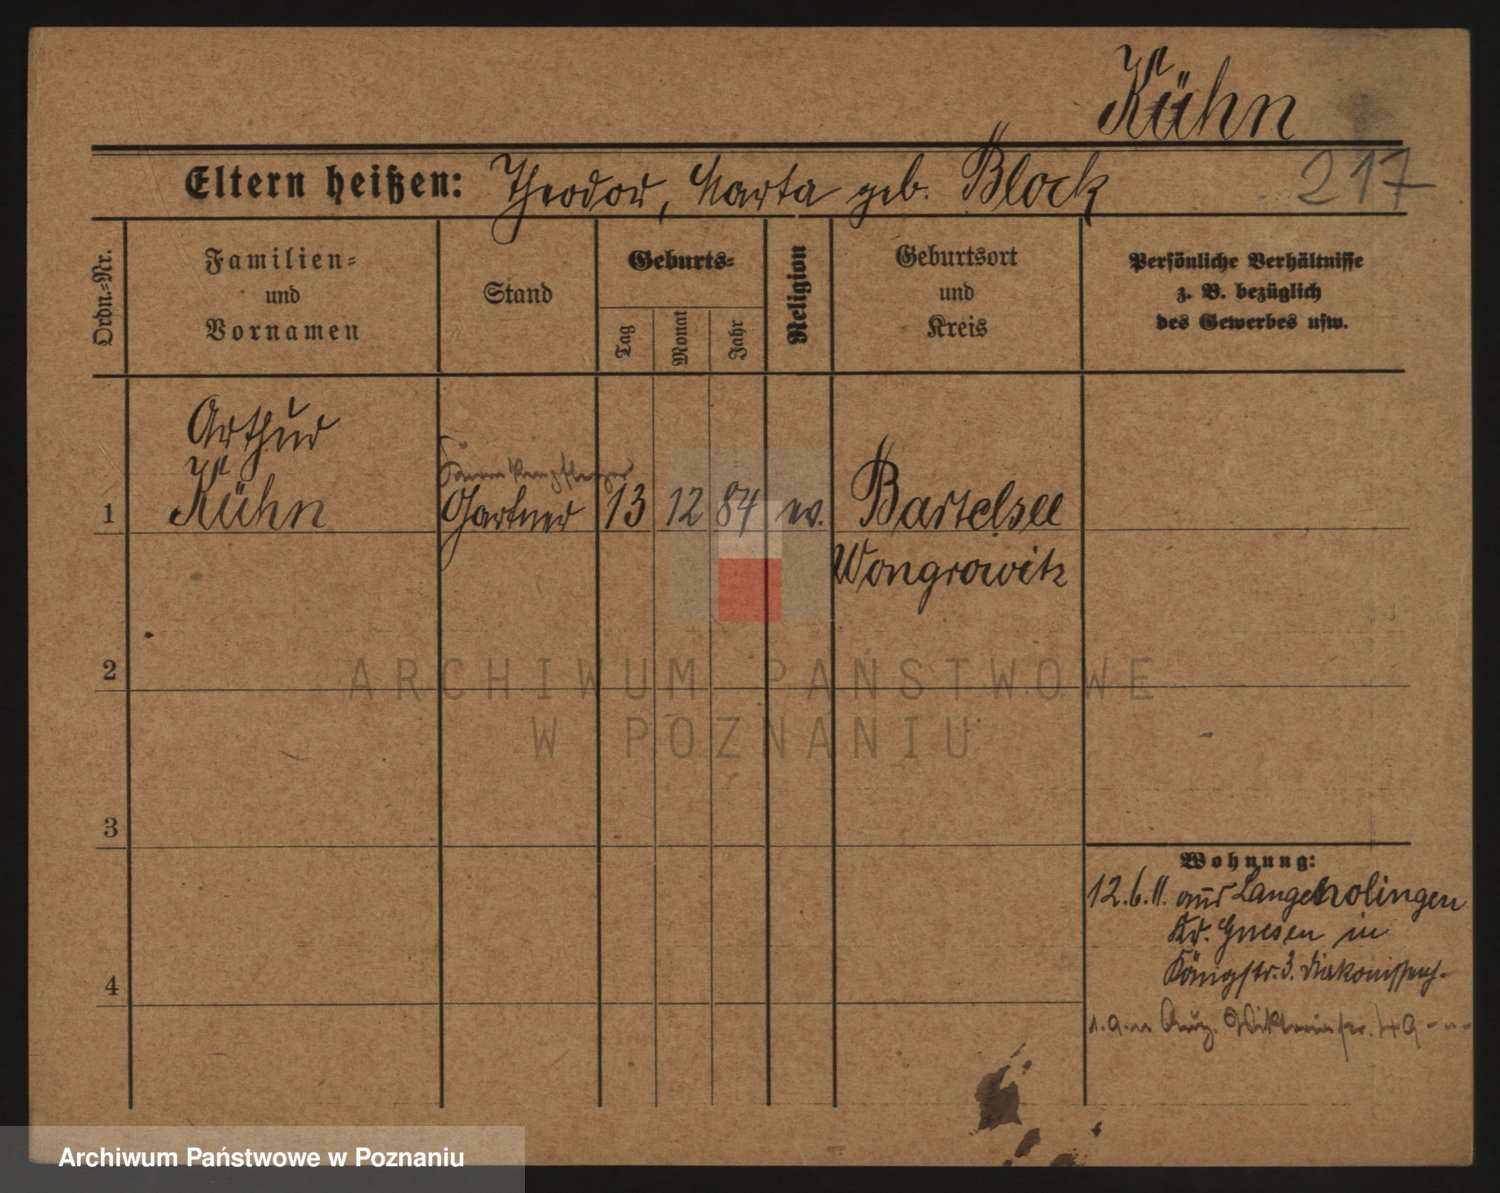 Kühn
217
Eltern heißen: Theodor, Marta geb. Block
Ordn.-Nr.
Familien-
und
Vornamen
Stand
Geburts-
Tag
Monat
Jahr
Religion
Geburtsort
und
Kreis
Persönliche Verhältnisse
z. B. bezüglich
des Gewerbes usw.
Arthur
Krankenpfleger
1 Kühn Gärtner 13 12 84 ev. Bartelsee
Wongrowitz
2
ARCHIWUM PAŃSTWOWE
W POZNANIU
3
Wohnung:
12.6.11. aus Langenolingen
Kr. Gnesen in
Königstr. 3. Diakonissenh.
4
Aug. Viktoriastr.
Archiwum Państwowe w Poznaniu